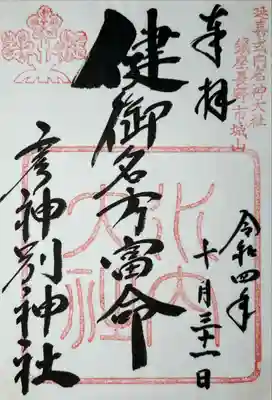 延喜式内名神大社
鎮座長野市城山
奉拝
健御名方富命
彦神別神社
水内大社
令和四年
十月三十一日